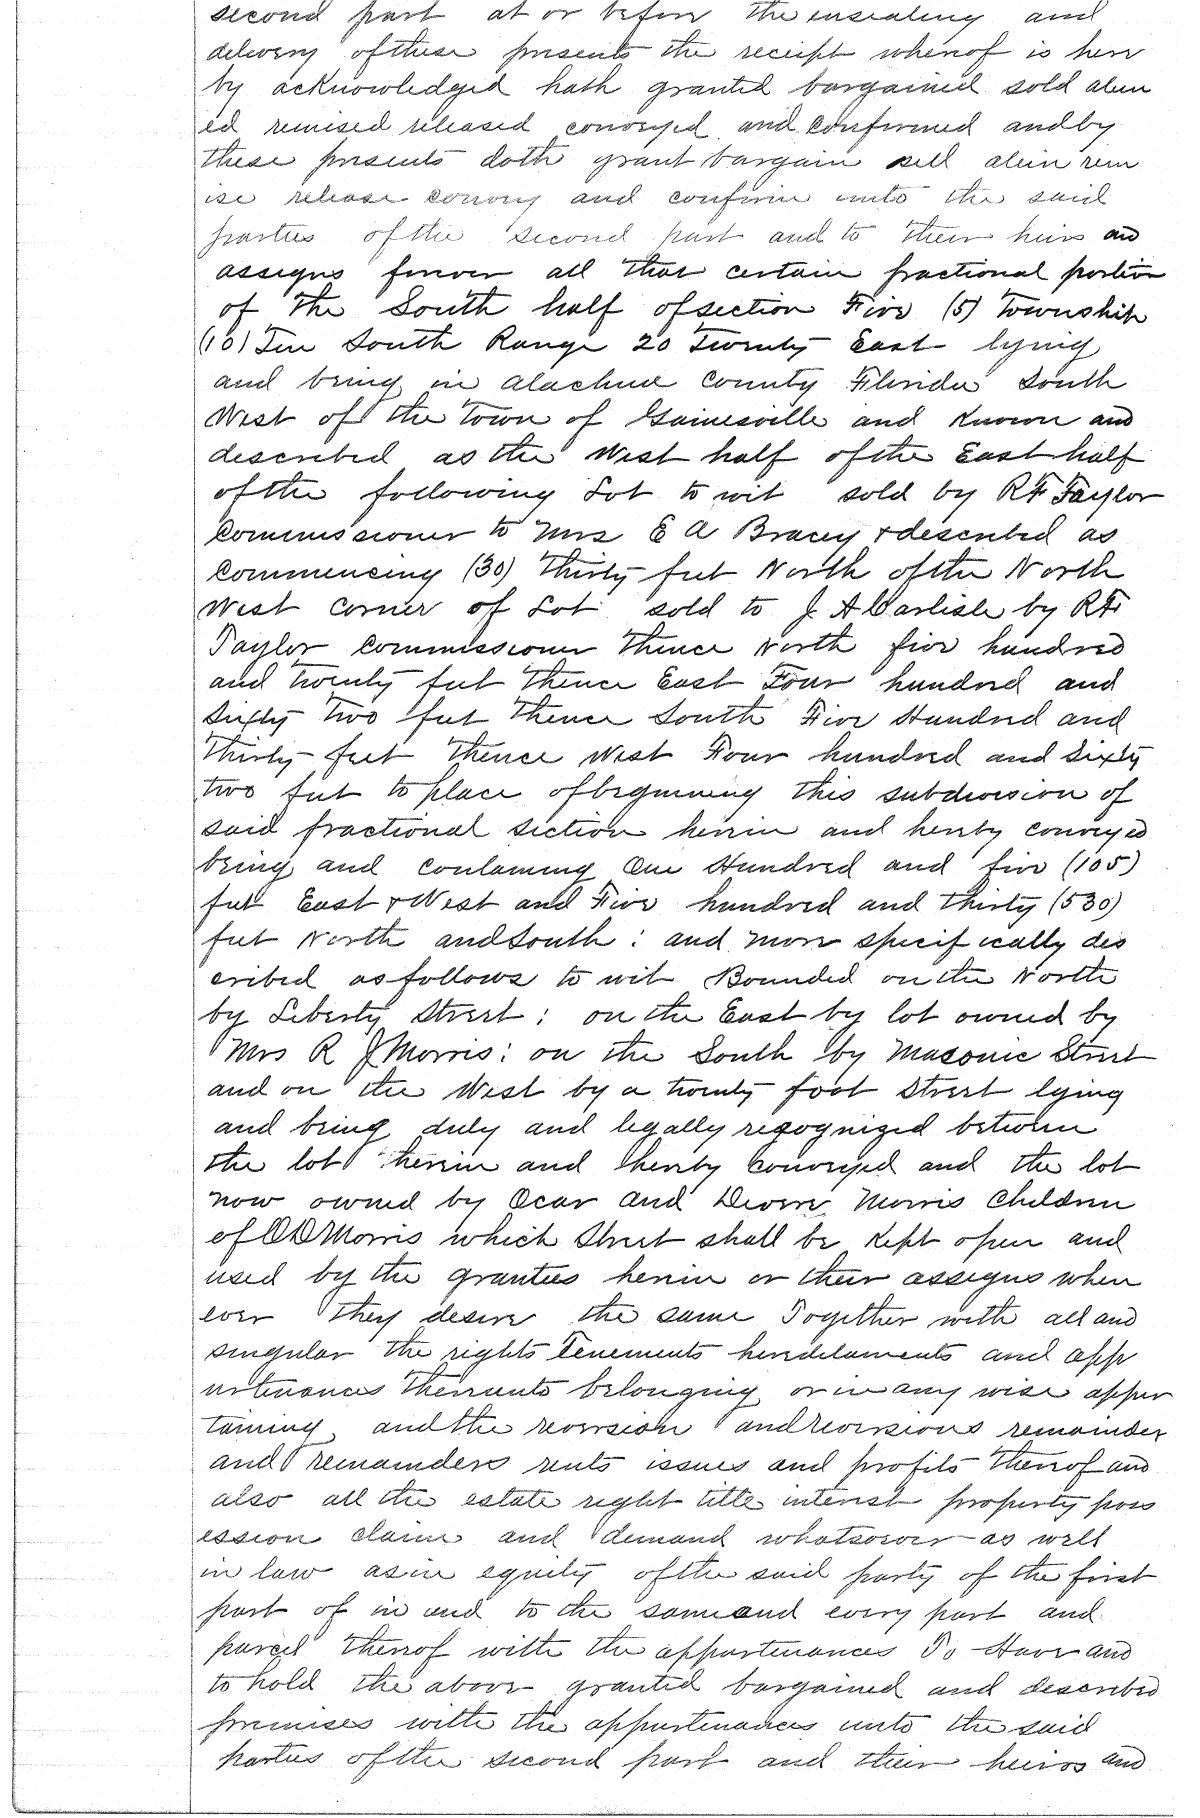 second part at or before the ensealing and
delivery of these presents the receipt whereof is here
by acknowledged hath granted bargained sold alien
ed remised released conveyed and confirmed and by
these presents doth grant bargain sell alein rem
ise release convey and confirm unto the said
parties of the second part and to their heirs and
assigns forever all that certain fractional portion
of the South half of section Five (5) Township
(10) Ten South Range 20 Twenty East lying
and being in Alachua County Florida South
West of the Town of Gainesville and Known and
described as the West half of the East half
of the following Lot to wit sold by R F Taylor
Commissioner to Mrs E A Bracey & described as
Commencing (30) Thirty feet North of the North
West Corner of Lot sold to J A Carlisle by R F
Taylor Commissioner Thence North five hundred
and twenty feet Thence East Four hundred and
Sixty Two feet Thence South Five Hundred and
Thirty feet Thence West Four hundred and Sixty
two feet to place of beginning this subdivision of
said fractional section herein and hereby conveyed
being and containing One Hundred and five (105)
feet East & West and Five hundred and thirty (530)
feet North and South : and more specifically des
cribed as follows to wit Bounded on the North
by Liberty Street : on the East by lot owned by
Mrs R J Morris : on the South by Masonic Street
and on the West by a twenty foot Street lying
and being duly and legally recognized between
the lot herein and hereby conveyed and the lot
now owned by Ocar and Devore Morris Children
of O D Morris which Street shall be Kept open and
used by the grantees herein or their assigns when
ever they desire the same Together with all and
singular the rights Tenements hereditaments and app
urtenances Thereunto belonging or in any wise apper
taining and the reversion and reversions remainder
and remainders rents issues and profits thereof and
also all the estate right title interest property poss
ession claim and demand whatsoever as well
in law as in equity of the said party of the first
part of in and to the same and every part and
parcel thereof with the appurtenances To Have and
to hold the above granted bargained and described
premises with the appurtenances unto the said
parties of the second part and their heirs and